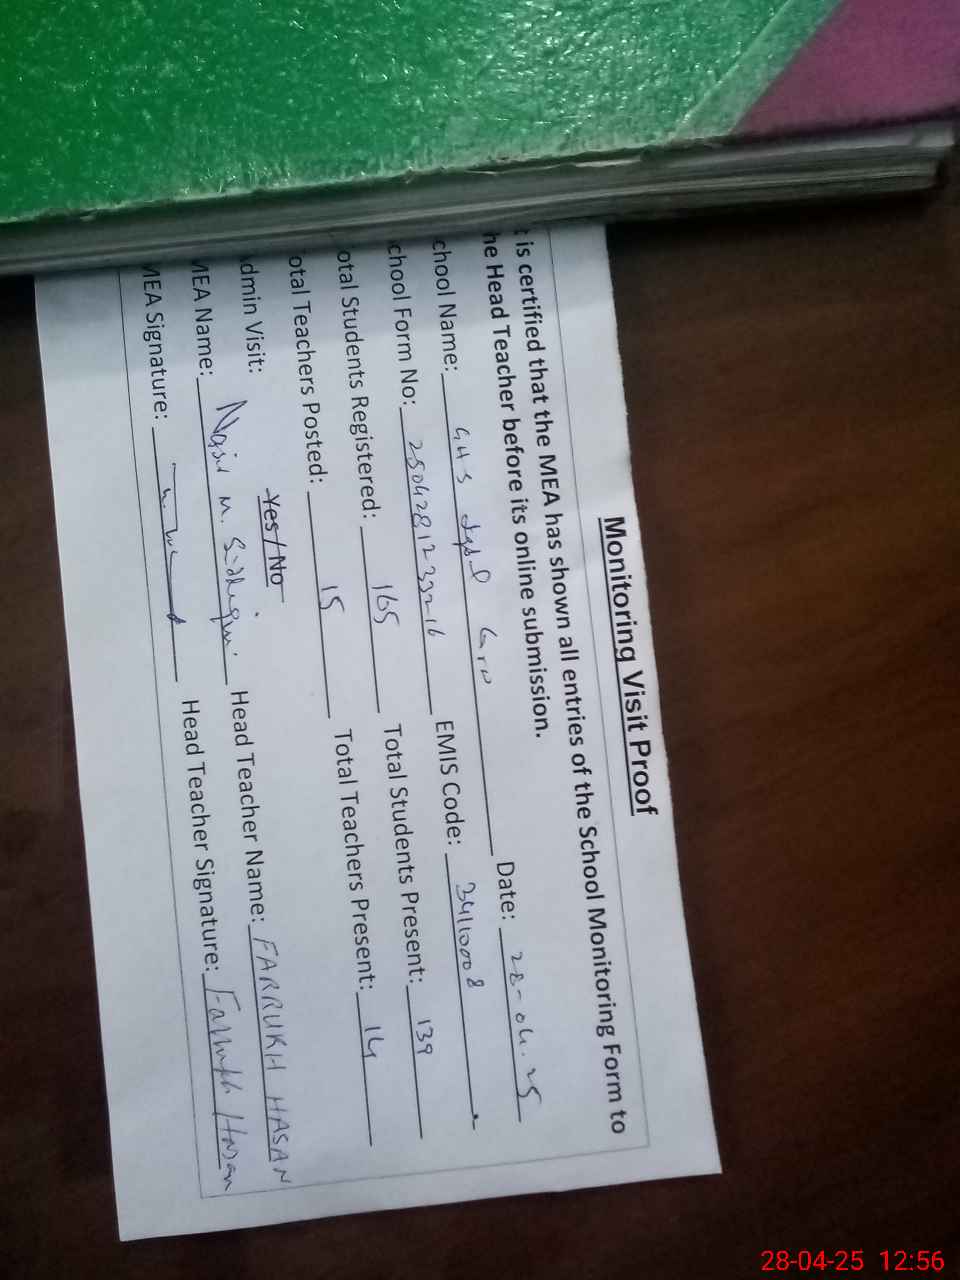 Monitoring Visit Proof
t is certified that the MEA has shown all entries of the School Monitoring Form to
he Head Teacher before its online submission.
chool Name: GHS Date: 28-04-25
chool Form No: EMIS Code: 34110008
otal Students Registered: 165 Total Students Present: 139
otal Teachers Posted: 15 Total Teachers Present: 14
dmin Visit: Yes/No
MEA Name: Nasir M. Siddiqui Head Teacher Name: FARRUKH HASAN
MEA Signature: Head Teacher Signature: Farrukh Hasan
28-04-25 12:56